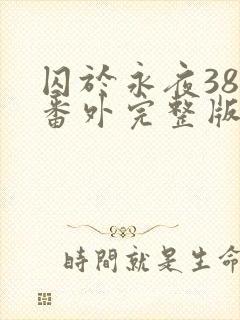 囚於永夜38
番外完整版
時間就是生命